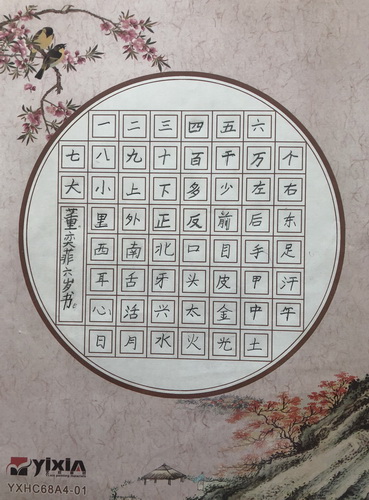 一二三四五六
七八九十百千万个
大小上下多少左右
里外正反前后东
西南北口目手足
耳舌牙头皮甲汗
心活兴太金中午
日月水火光土
董奕菲六岁书。
yixin
YXHC68A4-01